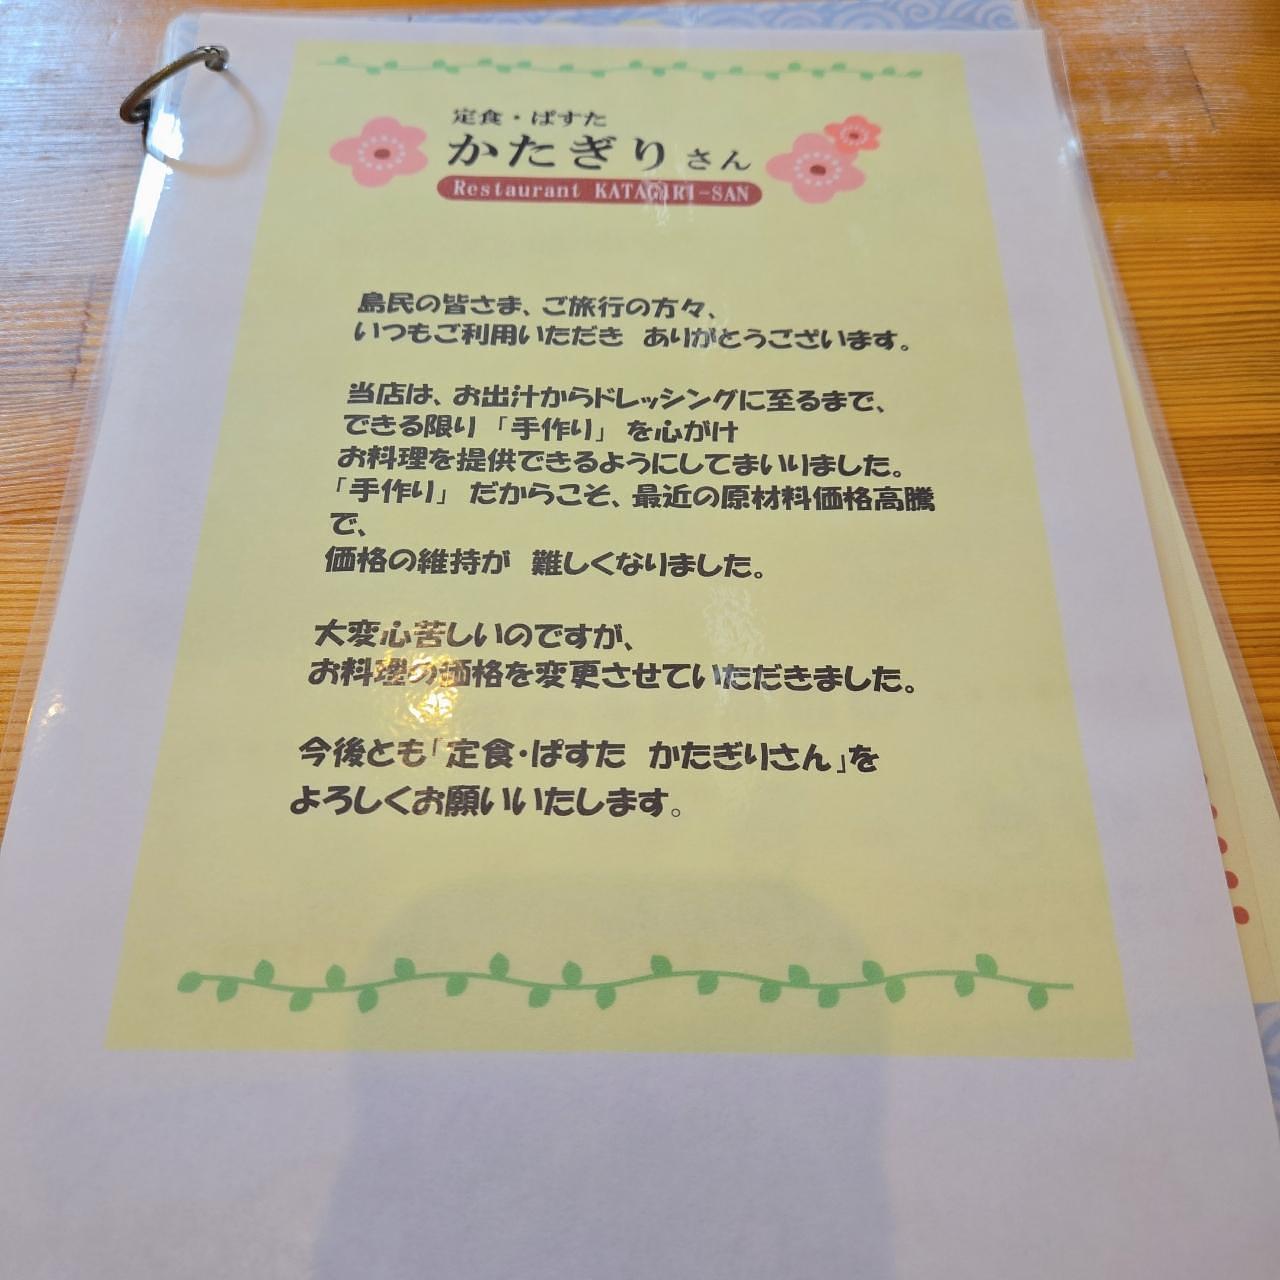 定食・ぱすた
かたぎりさん
Restaurant KATAGIRI-SAN
島民の皆さま、ご旅行の方々、
いつもご利用いただき ありがとうございます。
当店は、お出汁からドレッシングに至るまで、
できる限り 「手作り」 を心がけ
お料理を提供できるようにしてまいりました。
「手作り」 だからこそ、最近の原材料価格高騰
で、
価格の維持が 難しくなりました。
大変心苦しいのですが、
お料理の価格を変更させていただきました。
今後とも「定食・ぱすた かたぎりさん」を
よろしくお願いいたします。